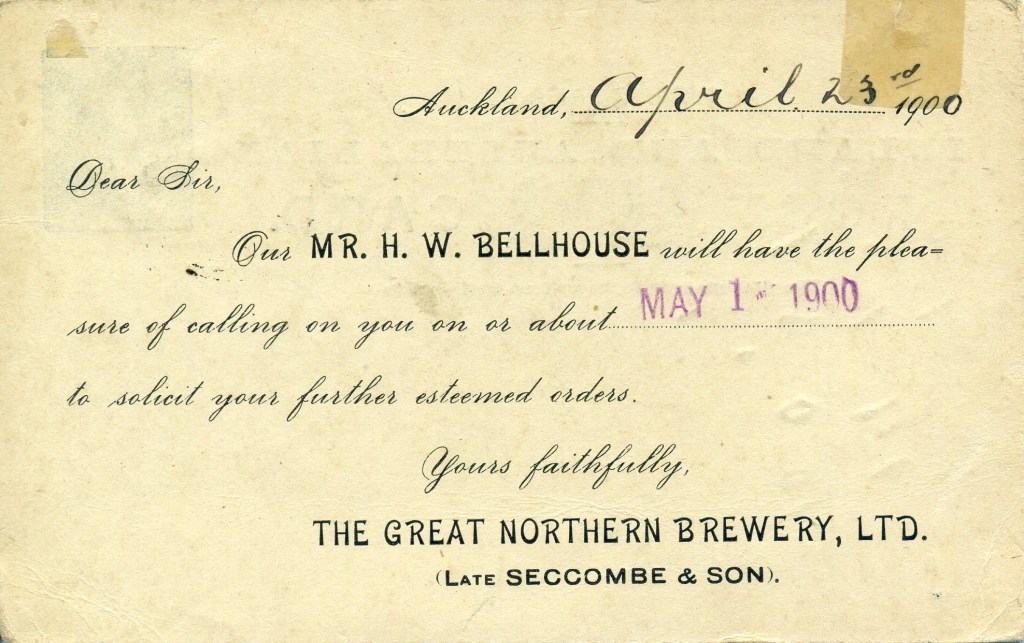 Auckland, April 23rd 1900
Dear Sir,
Our MR. H. W. BELLHOUSE will have the plea=
sure of calling on you on or about MAY 1 - 1900
to solicit your further esteemed orders.
Yours faithfully,
THE GREAT NORTHERN BREWERY, LTD.
(LATE SECCOMBE & SON).